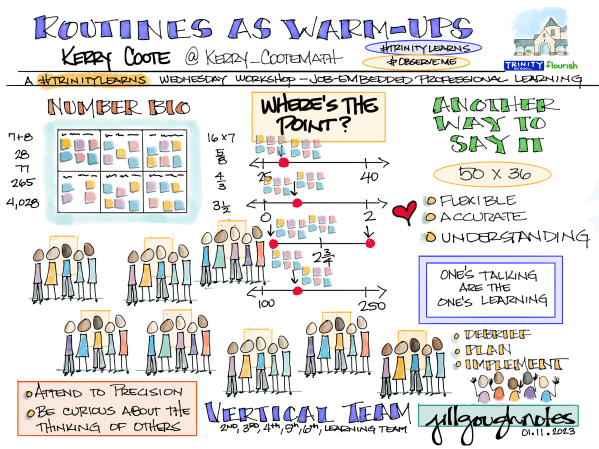 ROUTINES AS WARM-UPS
KERRY COOTE @ KERRY_COOTEMATH
#TRINITYLEARNS
#OBSERVEME
TRINITY SCHOOL flourish
A #TRINITYLEARNS WEDNESDAY WORKSHOP - JOB-EMBEDDED PROFESSIONAL LEARNING
NUMBER BIO
7+8
28
77
265
4,028
16x7
5/8
4/3
3 1/2
WHERE'S THE
POINT?
25 40
0 2
2 3/4
100 250
ANOTHER
WAY TO
SAY IT
50 x 36
FLEXIBLE
ACCURATE
UNDERSTANDING
ONE'S TALKING
ARE THE
ONE'S LEARNING
DEBRIEF
PLAN
IMPLEMENT
ATTEND TO PRECISION
BE CURIOUS ABOUT THE
THINKING OF OTHERS
VERTICAL TEAM
2ND, 3RD, 4TH, 5TH, 6TH, LEARNING TEAM
jillgoughnotes
01.11.2023